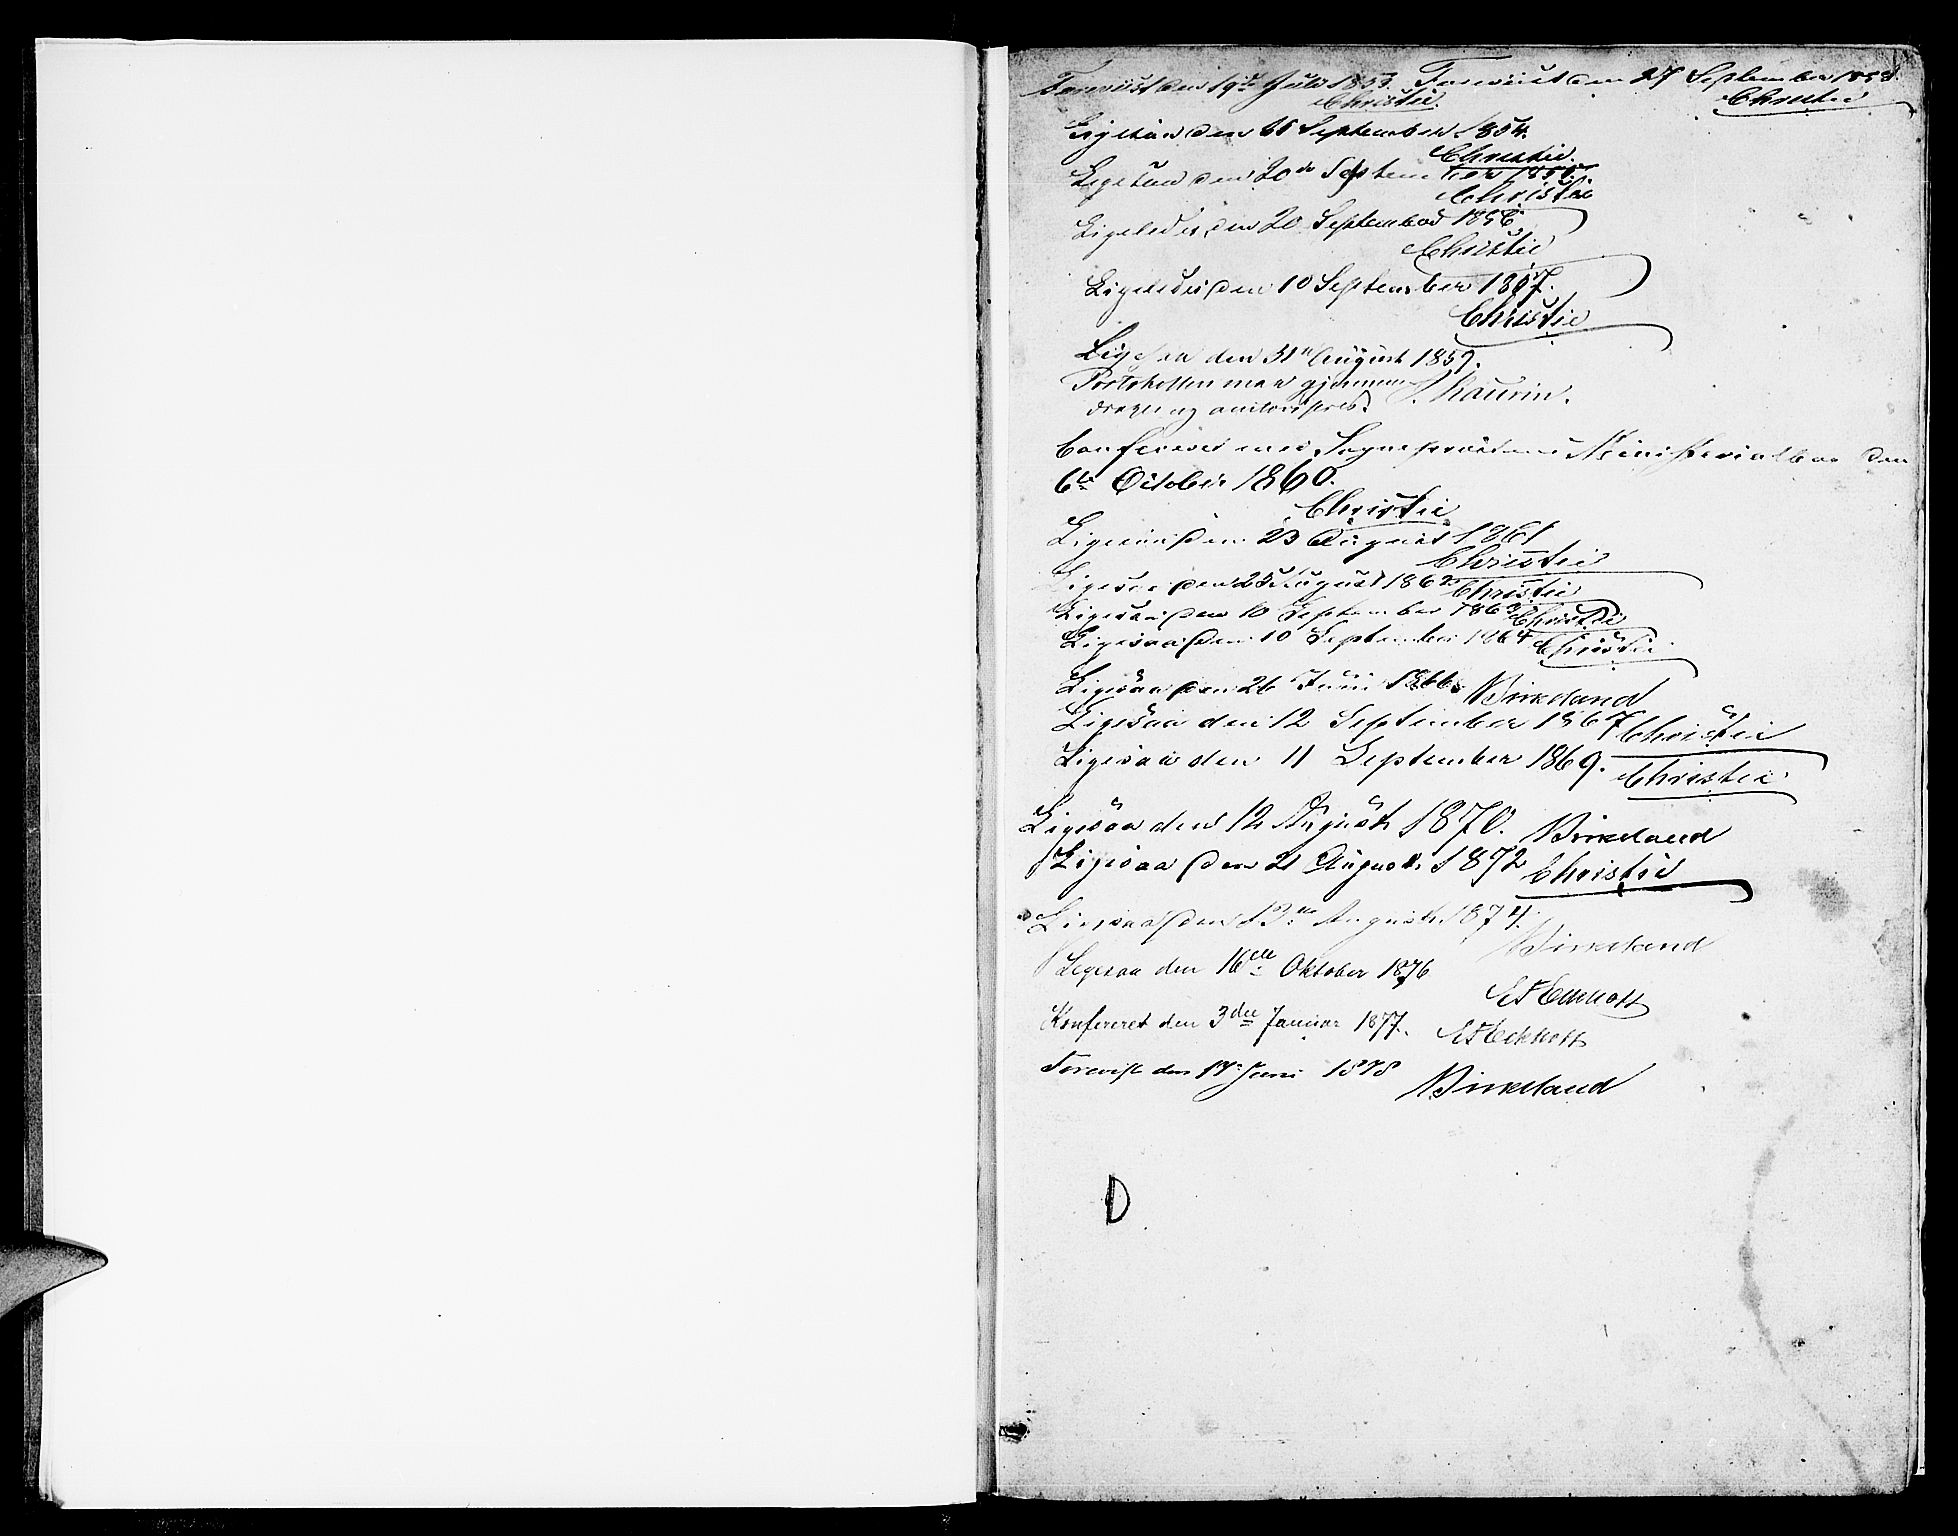 Foreviist den 19de Juli 1853. Foreviist den 27 September 1858.
Christie Christie
Ligesaa den 15 September 1854.
Christie.
Ligesaa den 20de September 1855.
Christie
Ligeledes den 20 September 1856
Christie
Ligeledes den 10 September 1857.
Christie
Ligesaa den 31te August 1859.
Protokollen
Confereret med Sognepræstens Ministerialbog den
6te October 1860.
Christie
Ligesaa den 23 August 1861
Christie
Ligesaa den 25 August 1862 Christie
Ligesaa den 10 September 1863 Christie
Ligesaa den 10 September 1864 Christie
Ligesaa den 26 Juni 1866 Birkeland
Ligesaa den 12 September 1867 Christie
Ligesaa den 11 September 1869. Christie
Ligesaa den 12 August 1870. Birkeland
Ligesaa den 21 August 1872 Christie
Ligesaa den 13de August 1874.
Birkeland
Ligesaa den 16de Oktober 1876
E T Eckhoff
Konfereret den 3die Januar 1877. E T Eckhoff
Forevist den 17 Juni 1878 Birkeland
D